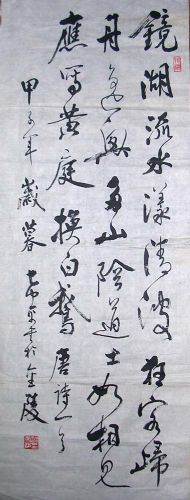 鏡湖流水漾清波狂客歸
舟逸興多山陰道士如相見
應寫黄庭換白鵝唐詩一首
甲子年歲暮於金陵